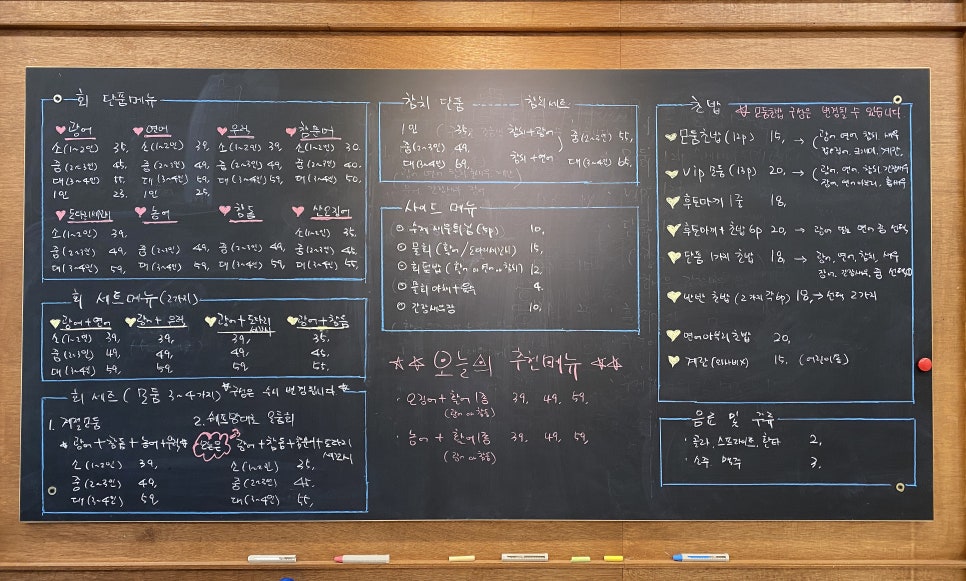 회 단품메뉴
광어 연어 우럭 참문어
소(1~2인) 35, 소(1~2인) 39, 소(1~2인) 39, 소(1~2인) 30.
중(2~3인) 45, 중(2~3인) 49, 중(2~3인) 49, 중(2~3인) 40.
대(3~4인) 55, 대(3~4인) 59, 대(3~4인) 59, 대(3~4인) 50,
1인 23, 1인 25,
도다리세꼬시 농어 참돔 산오징어
소(1~2인) 39, 소(1~2인) 35,
중(2~3인) 49, 중(2~3인) 49, 중(2~3인) 49, 중(2~3인) 45,
대(3~4인) 59, 대(3~4인) 59, 대(3~4인) 59, 대(3~4인) 55,
회 세트메뉴(2가지)
광어+연어 광어+우럭 광어+도다리세꼬시 광어+참돔
소(1~2인) 39, 39, 39, 35,
중(2~3인) 49, 49, 49, 45,
대(3~4인) 59, 59, 59 55,
회 세트(모둠 3~4가지) *구성은 수시 변경됩니다*
1. 계절모둠
*광어+참돔+농어+우럭*
소(1~2인) 39,
중(2~3인) 49,
대(3~4인) 59,
2. 쉐프맘대로 모둠회
오늘은 광어+참돔+참문어+도다리세꼬시
소(1~2인) 35,
중(2~3인) 45,
대(3~4인) 55,
참치 단품 참치세트
1인 35,
중(2~3인) 49,
대(3~4인) 69,
참치+광어
참치+연어
중(2~3인) 55,
대(3~4인) 65,
사이드 메뉴
수제 새우튀김(5p) 10,
물회(광어/도다리세꼬시) 15,
회덮밥(광어 or 연어 or 참치) 12
물회야채+육수 4.
간장새우장 10,
☆☆ 오늘의 추천메뉴 ☆☆
· 오징어+활어1종 39, 49, 59,
(광어 or 참돔)
· 농어+활어1종 39, 49, 59,
(광어 or 참돔)
초밥 모둠초밥 구성은 변경될 수 있습니다
모둠초밥(12p) 15, → 광어, 연어, 참치, 새우
계란,
Vip 모듬(13p) 20, → 광어, 연어, 참치, 간장새우
장어,
후토마끼 1줄 18,
후토마끼+초밥 6p 20, → 광어 또는 연어 중 선택
단품 1가지 초밥 18, → 광어, 연어, 참치, 새우
장어, 간장새우, 중 선택①
반반 초밥(2가지 각 6p) 18, → 선택 2가지
연어아부리초밥 20,
계란(와사비X) 15. (어린이용)
음료 및 주류
· 콜라, 스프라이트, 환타 2,
· 소주 맥주 3.